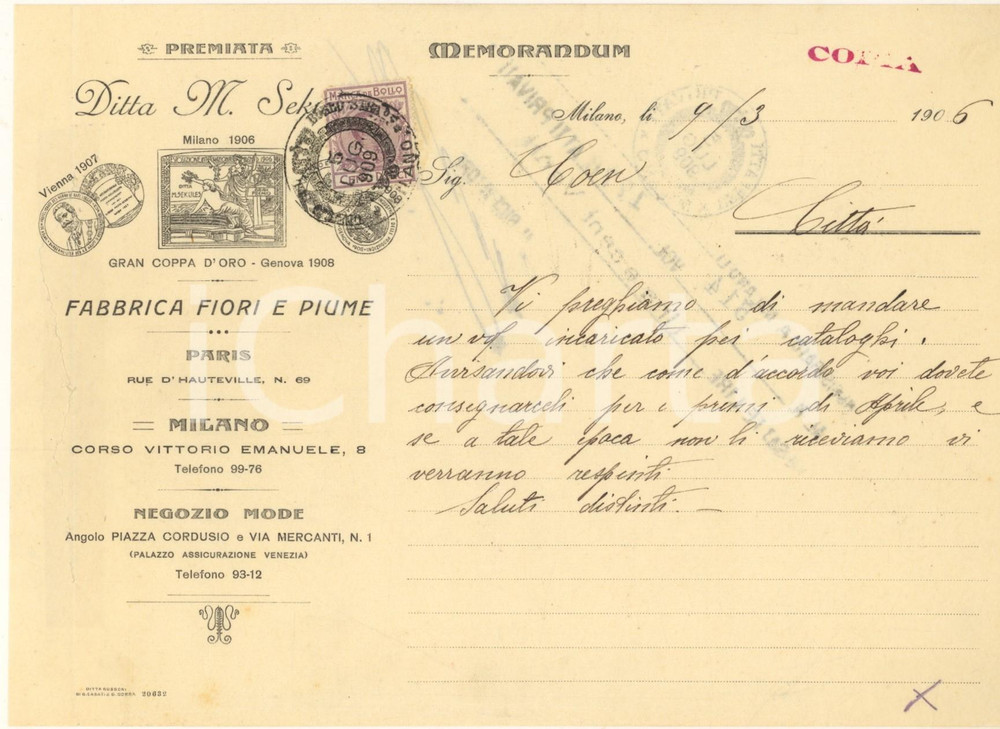 PREMIATA
MEMORANDUM
COPIA
Ditta M. Sek
MARCA DA BOLLO
LUG.
909
Milano, li 9/3 1906
Sig. Coen
Città
Milano 1906
Vienna 1907
DITTA
M. SEKULES
GRAN COPPA D'ORO - Genova 1908
FABBRICA FIORI E PIUME
PARIS
RUE D'HAUTEVILLE, N. 69
MILANO
CORSO VITTORIO EMANUELE, 8
Telefono 99-76
NEGOZIO MODE
Angolo PIAZZA CORDUSIO e VIA MERCANTI, N. 1
(PALAZZO ASSICURAZIONE VENEZIA)
Telefono 93-12
Vi preghiamo di mandare
un vs/ incaricato pei cataloghi.
Avvisandovi che come d'accordo voi dovete
consegnarceli per i primi di Aprile, e
se a tale epoca non li riceviamo vi
verranno respinti
Saluti distinti. —
iCharta
20632
X